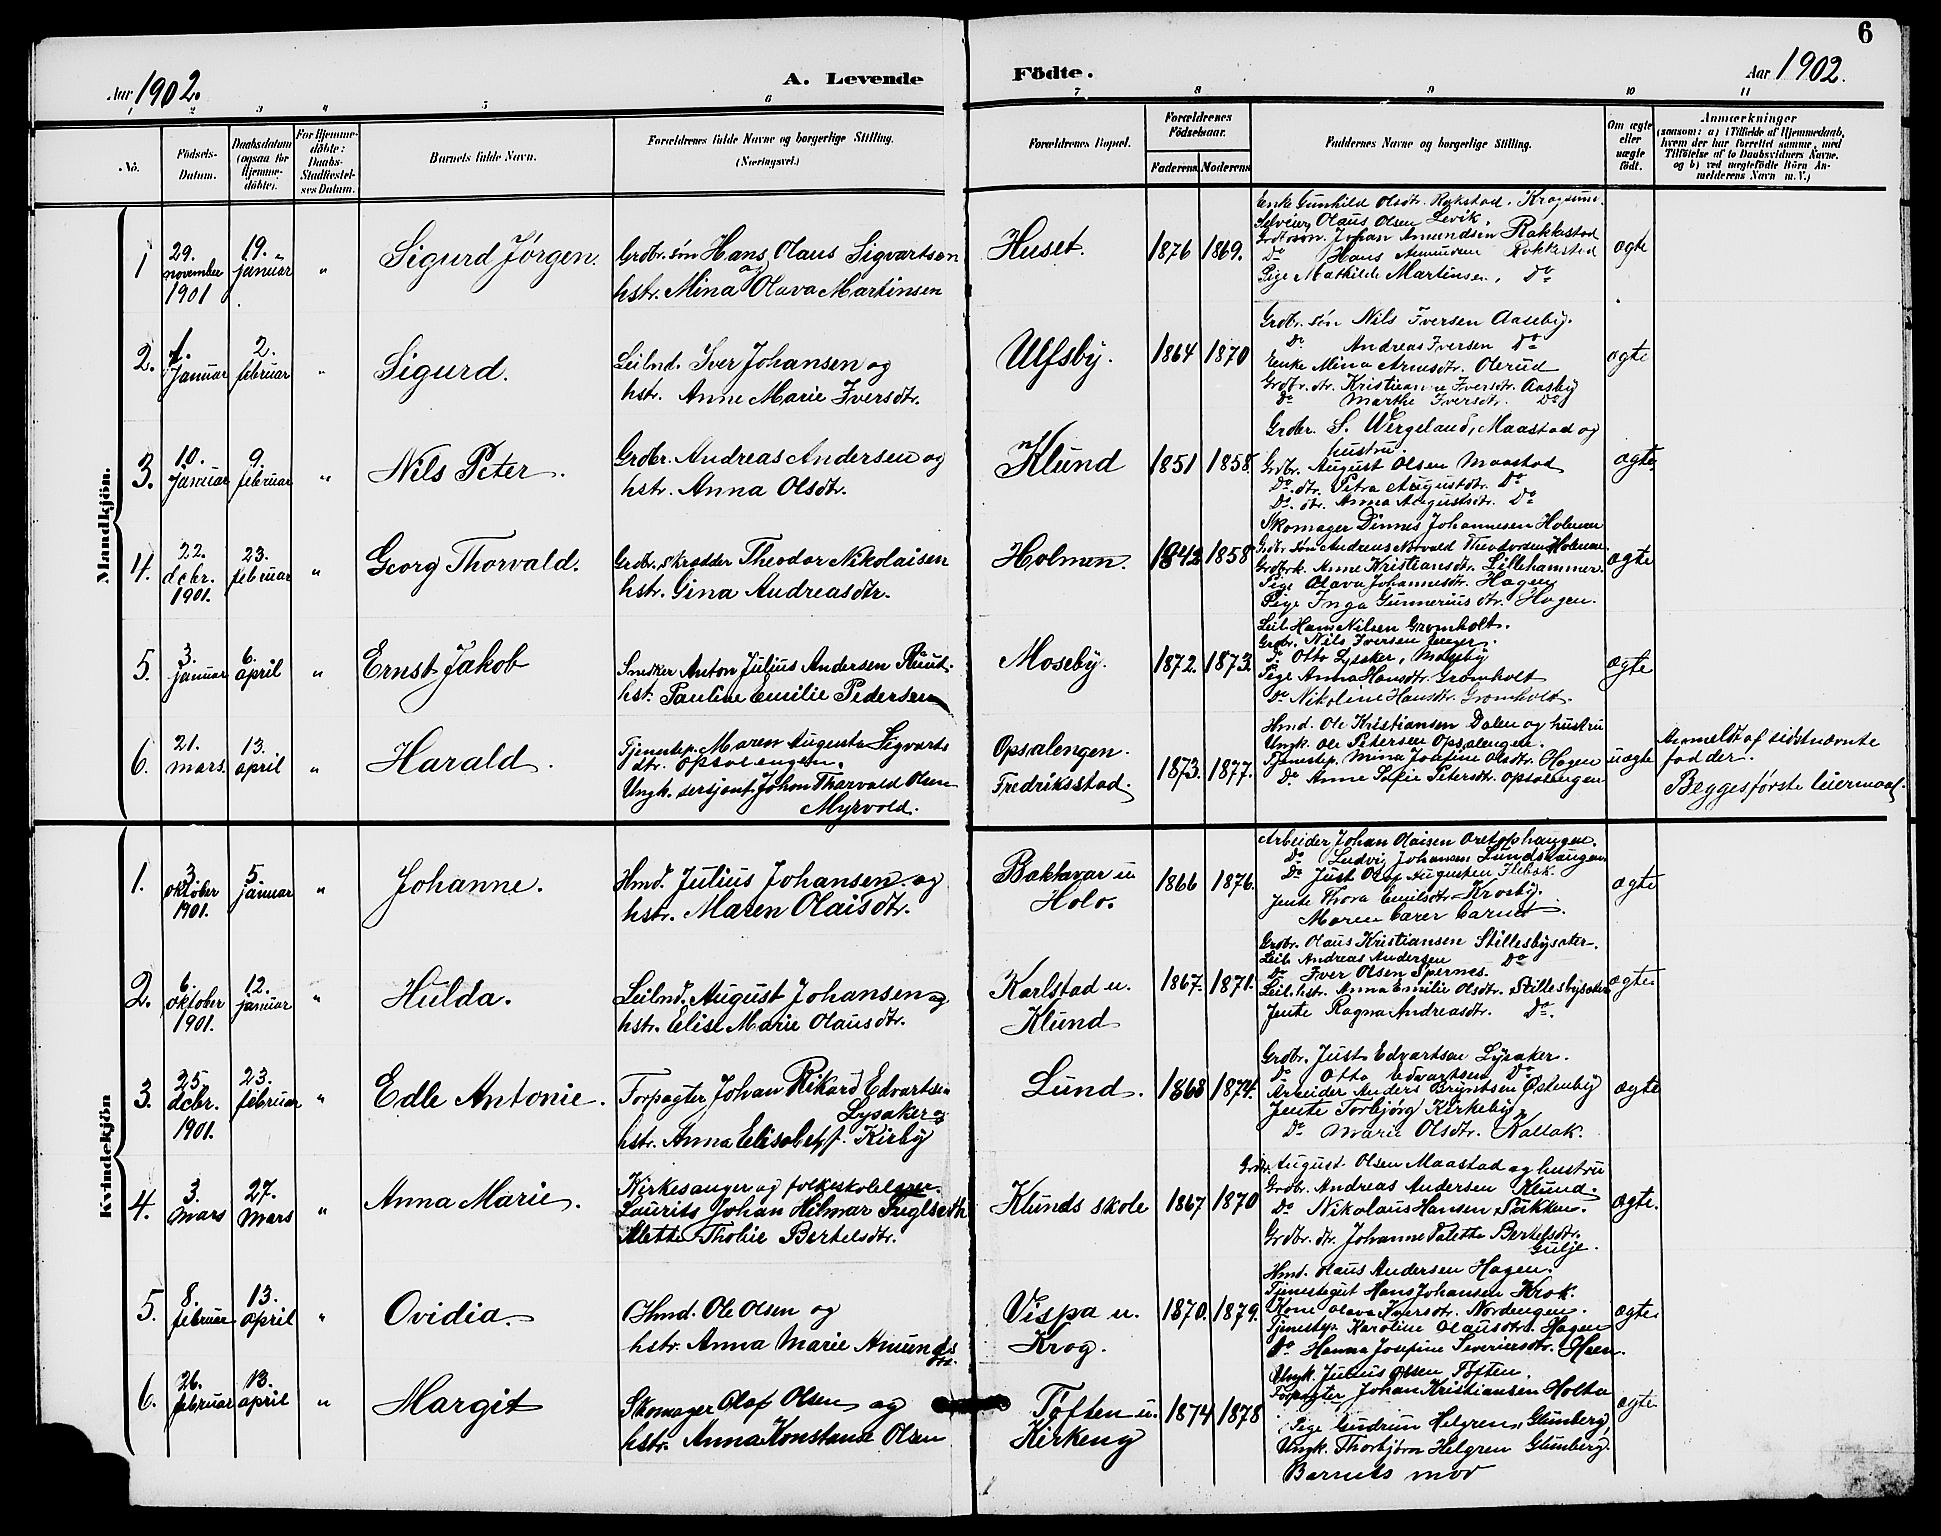 6
Aar 1902.
A. Levende Födte.
Aar 1902.
1 2 3 4 5 6 7 8 9 10 11
No.
Födsels-Datum.
Daabsdatum (ogsaa for Hjemmedöbte).
For Hjemmedöbte: Daabs-Stadfæstelses Datum.
Barnets fulde Navn.
Forældrenes fulde Navne og borgerlige Stilling. (Næringsvei.)
Forældrenes Bopæl.
Forældrenes Födselsaar.
Faderens. Moderens.
Faddernes Navne og borgerlige Stilling.
Om ægte eller uægte födt.
Anmærkninger
(saasom: a) i Tilfælde af Hjemmedaab, hvem der har forrettet samme, med Tilföielse af to Daabsvidners Navne, og b) ved uægtefödte Börn Anmelderens Navn m. V.)
Mandkjön.
1
29. november 1901
19. januar
"
Sigurd Jørgen.
Grdbr. søn Hans Olaus Sigvartsen og
hstr. Mina Olava Martinsen
Huset.
1876 1869.
Enke Gunhild Olsdtr. Rokstad, Krogsund.
Selveier Olaus Olsen Levik.
Grdbr.søn. Johan Amundsen Rakkestad
Do Hans Amundsen Rakkestad
Pige Mathilde Martinsen, Do
ægte
2.
1. januar
2. februar
"
Sigurd.
Leilnd. Iver Johansen og
hstr. Anne Marie Iversdtr.
Ulfsby.
1864 1870
Grdbr. søn Nils Iversen Aaseby.
Do Andreas Iversen Do
Enke Mina Arnesdtr. Olerud
Grdbr. dtr. Kristianne Iversdtr. Aasby
Do Marthe Iversdtr. Do
ægte
3.
10. januar
9. februar
"
Nils Peter.
Grdbr. Andreas Andersen og
hstr. Anna Olsdtr.
Klund
1851 1858.
Grdbr. S. Wergeland, Maastad og
hustru.
Grdbr. August Olsen Maastad
Do. dtr. Petra Augustdtr. Do
Do. dtr. Anna Augustsdtr. Do
ægte
4.
22. dcbr. 1901.
23. februar
"
Georg Thorvald.
Grdbr. skrædder Theodor Nikolaisen
hstr. Gina Andreasdtr.
Holmen.
1842 1858
Skomager Dinnes Johannesen Holmen
Grdbr søn Andreas Norvald Theodorsen Holmen.
Grdbrk. Anne Kristiansdtr. Lillehammer.
Pige Olava Johannesdtr. Hagen
Pige Inga Gunnerius dtr. Hagen.
ægte
5.
3. januar
6. april
"
Ernst Jakob
Snedker Anton Julius Andersen
hst. Pauline Emilie Pedersen
Moseby.
1872. 1873.
Leil. Hans Nilsen Gromholt.
Grdbr. Nils Iversen
Otto Lysaker, Moseby
Pige Anna Hansdtr. Gromholt
Do Nikoline Hansdtr. Gromholt.
ægte
6.
21. mars.
13. april
"
Harald.
Tjenestep. Maren Augusta Sigvarts
dtr. Opsalengen.
Ungk. sersjant Johan Thorvald Olsen
Myrvold.
Opsalengen.
Fredriksstad.
1873. 1877.
Hmd. Ole Kristiansen Dalen og hustru
Ungk. Ole Petersen Opsalengen.
Tjenestep. Mina Josefine Olsdtr. Hagen
Do Anne Sofie Petersdtr. Opsalengen
uægte
Anmeldt af sidstnævnte
fadder.
Begges første leiermaal.
Kvindekjön
1.
3. oktober 1901.
5. januar
"
Johanne.
Hmd. Julius Johansen og
hstr. Maren Olaisdtr.
Bakkavar u
Holo.
1866 1876.
Arbeider Johan Olaisen
Do Ludvig Johansen Lundshaugen
Do Just Olaf Augusten
Jente Thora Emilsdtr. Krosby.
Maren
ægte
2.
6. oktober 1901.
12. januar
"
Hulda.
Leilnd. August Johansen og
hstr. Elise Marie Olausdtr.
Karlstad u.
Klund
1867. 1871.
Grdbr. Olaus Kristiansen Stillesbysæter.
Leil. Andreas Andersen Do
Do Iver Olsen Spernes.
Leil.hstr. Anna Emilie Olsdtr. Stillesbysæter
Jente Ragna Andreasdtr. Do.
ægte
3.
25. dcbr. 1901.
23. februar
"
Edle Antonie.
Forpagter Johan Rikard Edvartsen
Lysaker og
hstr. Anna Elisabet f. Kirby
Lund.
1868 1874.
Grdbr. Just Edvartsen Lysaker.
Do Otto Edvartsen Do
Arbeider Anders Bryntsen Østenby
Jente Torbjørg Kirkeby
Do Marie Olsdtr. Kallak.
ægte
4.
3. mars
27. mars
"
Anna Marie.
Kirkesanger og folkeskolelærer
Laurits Johan Hilmar Inglseth
Alette Thobie Bertelsdtr.
Klunds skole
1867 1870
Grdbr. August Olsen Maastad og hustru
Grdbr. Andreas Andersen Klund.
Do Nikolaus Hansen Stikken.
Grdbr. dtr. Johanne Valette Bertelsdtr.
Gulje.
ægte.
5.
8. februar
13. april
"
Ovidia.
Hmd. Ole Olsen og
hstr. Anna Marie Amunds
dtr.
Vispa u.
Krog.
1870. 1879.
Hmd. Olaus Andersen Hagen.
Tjenestegut Hans Johansen Krok.
Kone Olava Iversdtr. Nordengen.
Tjenestp. Karoline Olausdtr. Hagen
Do Hanna Josefine Severinsdtr. Hæen.
ægte
6.
26. februar
13. april
"
Margit
Skomager Olaf Olsen og
hstr. Anna Konstanse Olsen
Toften u.
Kirkeng
1874 1878
Ungk. Julius Olsen Toften.
Forpagter Johan Kristiansen Holta
Pige Gudrun Helgren, Glimberg
Ungk. Thorbjørn Helgren Glimberg.
Barnets mor
ægte